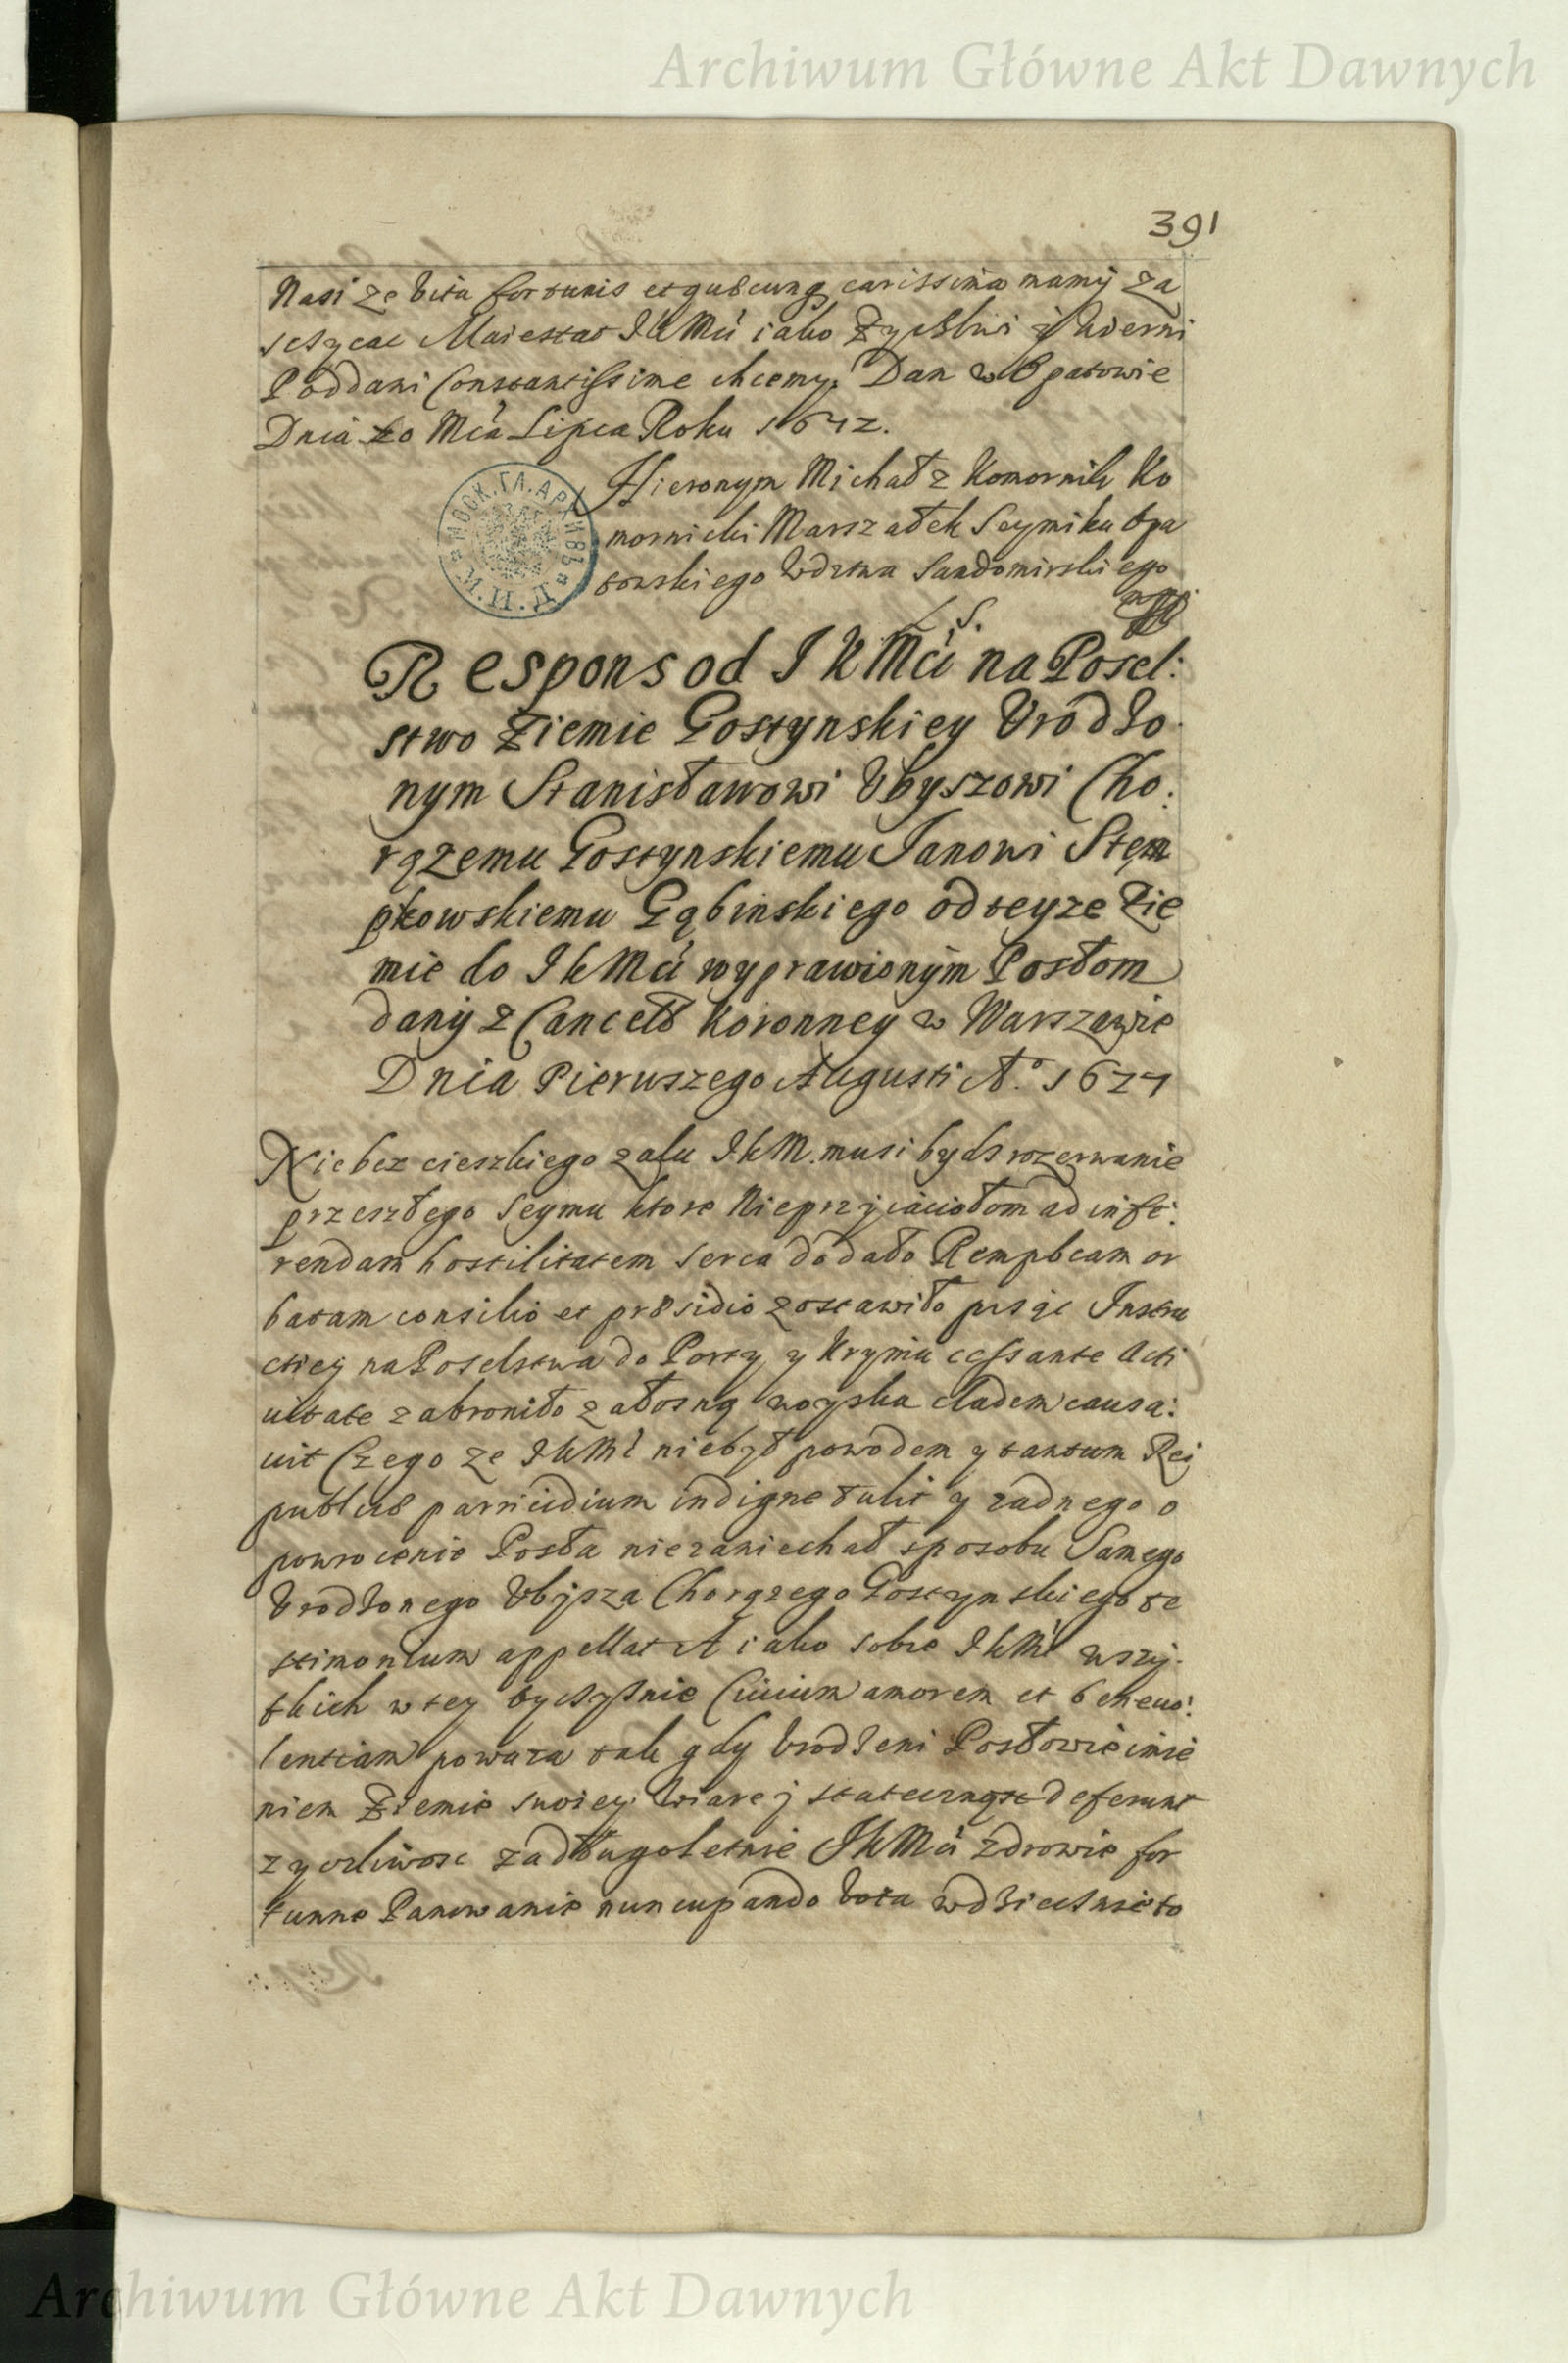 Archiwum Główne Akt Dawnych
391
Nasi ze vita fortunis et quaecunq carissima mamy za
sczycac Maiestat JKMci iako Zyczliwi y Wierni
Poddani Constantissime chcemy. Dan w Opatowie
Dnia 20 Mca Lipca Roku 1672.
Hieronym Michał z Komornik Ko
mornicki Marszałek Seymiku Opa
towskiego Wdztwa Sandomirskiego
L S.
Respons od JKMci na Posel:
stwo Ziemie Gostynskiey Vrodzo
nym Stanisławowi Vbyszowi Cho:
rązemu Gostynskiemu Janowi Stęm
pkowskiemu Gąbinskiego od teyze Zie
mie do JKMci wyprawionym Posłom
dany z Cancell Koronney w Warszawie
Dnia Pierwszego Augusti Ao 1672
Nie bez cieszkiego zalu JKM. musi byds rozerwanie
przeszłego Seymu ktore Nieprzyiaciołom ad infe:
rendam hostilitatem serca dodało Rempbcam or
batam consilio et praesidio zostawiło pisac Instru
ctiey na Poselstwa do Porty y Krymu cessante Acti
uitate zabroniło załosną woyska cladem causa:
uit Czego ze JKMc niebył powodem y tantum Rei
publicae parricidium indigne tulit y zadnego o
powrocenie Posła niezaniechał sposobu Samego
Vrodzonego Vbysza Chorązego Gostynskiego te
stimonium appellat A iako sobie JKMc wszy:
tkich w tey oyczyznie Ciuium amorem et beneuo:
lentiam powaza tak gdy Vrodzeni Posłowie imie
niem Ziemie swoiey Wiarę y stateczność deferunt
zyczliwosc za długoletnie JKMci zdrowie for
tunne Panowanie nuncupando vota wdziecznie to
Archiwum Główne Akt Dawnych